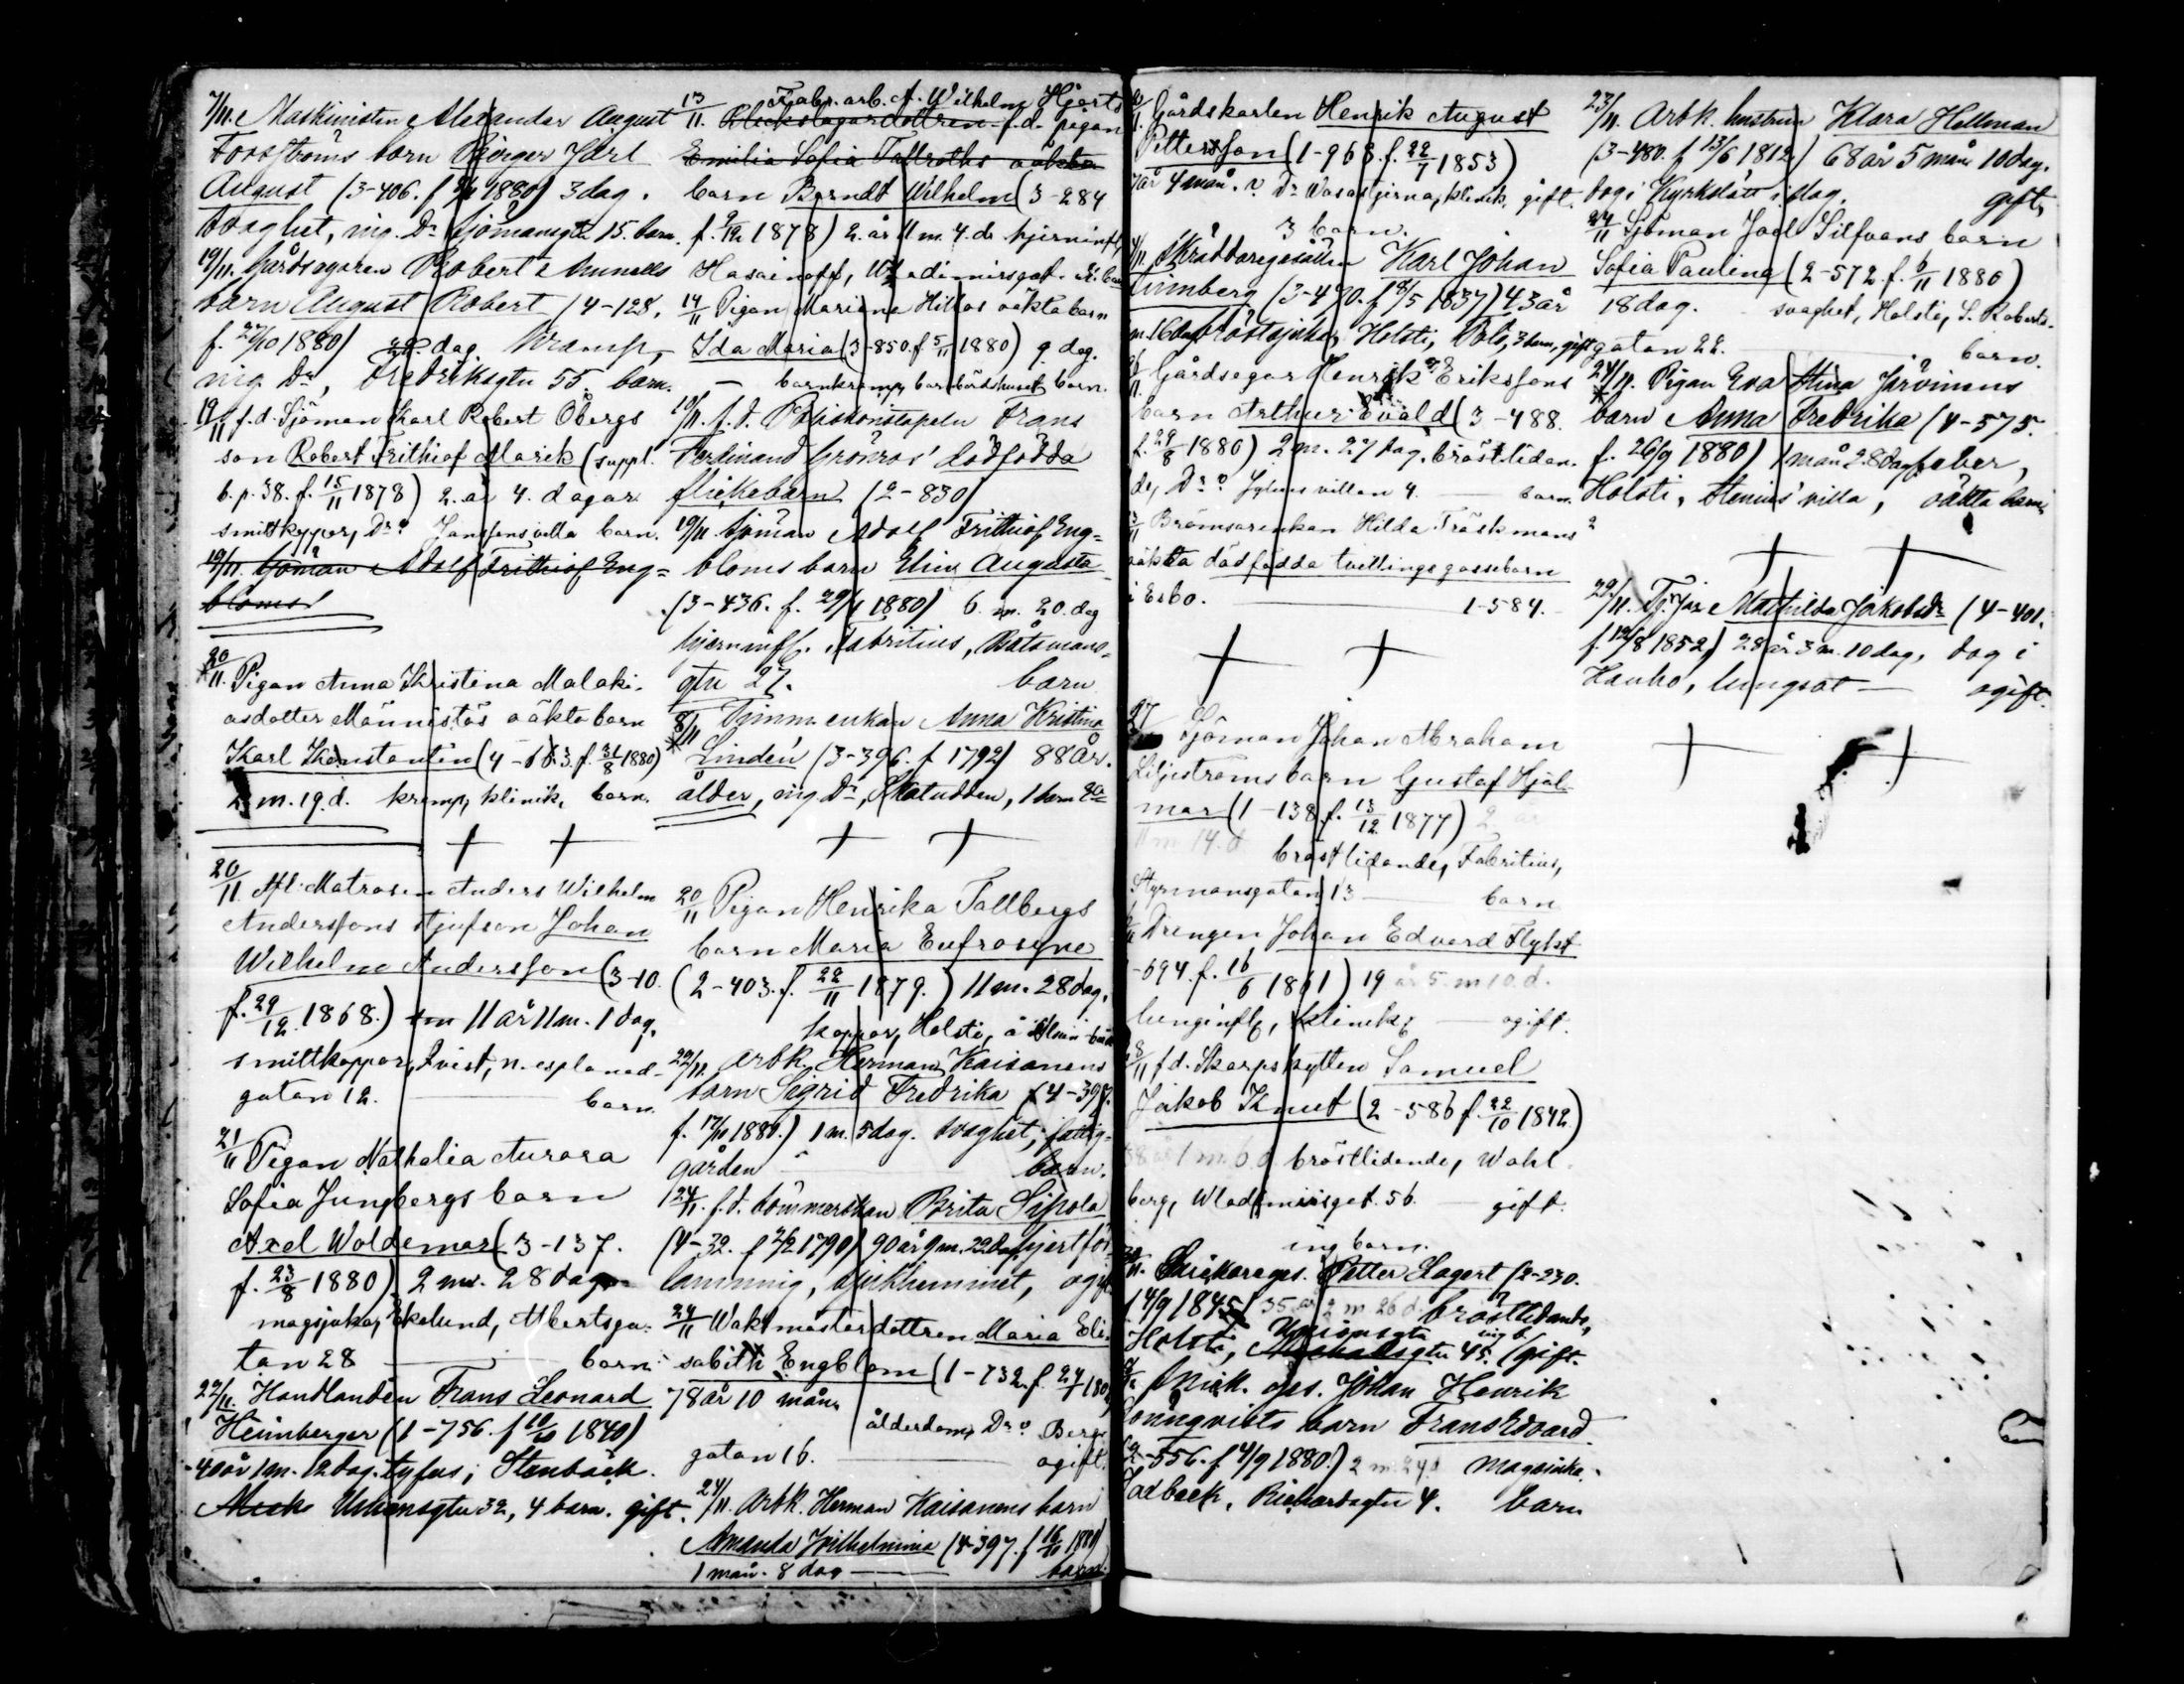 7/11. Maskinisten Alexander August
Forsströms barn Birger Jarl
August (3-406. f 1880) 3 dag.
svaghet, ing. Dr Sjömansgtn 15. barn.
19/11. Gårdsegaren Robert Munells
barn August Robert (4-128.
f. 27/10 1880) 22 dag kramp,
ing. Dr, Fredriksgtn 55. barn.
19/11 f.d. Sjöman Karl Robert Öbergs
son Robert Frithiof Alarik (suppl.
b. p. 38. f. 15/11 1878) 2. år 4. dagar
smittkoppor, Dr o Janssons villa barn.
19/11. Sjöman Adolf Frithiof Eng=
bloms
20/11. Pigan Anna Kristina Malaki-
asdotter Männistös oäkta barn
Karl Konstantin (4- f. 31/8 1880)
2 m. 19. d. kramp, klinik, barn.
20/11 Afl. Matrosen Anders Wilhelm
Anderssons stjufson Johan
Wilhelm Andersson (3-10.
f. 29/12 1868.) 11 år 11 m. 1 dag.
smittkoppor, Qvist, n. esplanad-
gatan 12. barn.
21/11 Pigan Nathalia Aurora
Sofia Jungbergs barn
Axel Woldemar (3-137.
f. 23/8 1880) 2 m. 28 dagar
magsjuka, Ekelund, Albertsga-
tan 28 barn
22/11. Handlanden Frans Leonard
Heimberger (1-756. f 10/10 1840)
40 år 1 m. 12 dag. tyfus; Stenbäck.
Unionsgtn 32, 4 barn. gift.
13/11. Fabr. arb. A. Wilhelm Hjorts
Bleckslagardottren f.d. pigan
Emilia Sofia Tallroths oäkta
barn Berndt Wilhelm (3-284
f. 9/12 1878) 2. år 11 m. 4. d. hjerninfl,
Hasainoff, Wladimirsgat.
14/11 Pigan Mariana Hillos oäkta barn
Ida Maria (3-850. f 5/11 1880) 9 dag.
- barnkramp, barnbördshuset barn.
19/11. f.d. Poliskonstapeln Frans
Ferdinand Grönroos' dödfödda
flickebarn (2-830)
19/11 Sjöman Adolf Frithiof Eng=
bloms barn Elin Augusta
(3-436. f. 29/4 1880) 6. m. 20. dag
hjerninfl. Fabritius, Båtsmans-
gtn 27. barn
8/11 Timm. enkan Anna Kristina
Lindén (3-396. f 1792) 88 år.
ålder, ing Dr, Skatudden, 1 barn
20/11 Pigan Henrika Tallbergs
barn Maria Eufrosyne
(2-403. f. 22/11 1879.) 11 m. 28 dag.
koppor, Holsti,
22/11. arbk. Herman Kaisanens
barn Sigrid Fredrika (4-397.
f. 17/10 1880.) 1 m. 5 dag. svaghet; fattig-
gården barn.
24/11. f.d. Sömmerskan Brita Sipola
(4-32. f 2/2 1790) 90 år 9 m. 22 dag hjertför-
lamning, sjukhemmet, ogift
24/11 Waktmästerdottren Maria Eli-
sabeth Engblom (1-732. f 24/1
78 år 10 mån.
ålderdom, Dr o Berg
gatan 16. ogift.
24/11. Arbk. Herman Kaisanens barn
Amanda Wilhelmina (4-397. f 16/10 1880)
1 mån. 8 dag barn
Gårdskarlen Henrik August
Pettersson (1-963. f. 22/7 1853)
7 år 4 mån. Dr Wasastjerna, klinik, gift.
3 barn.
Skräddaregesällen Karl Johan
Limberg (3-490. f 18/5 1837) 43 år
m. 16 dag bröstsjuka, Holsti, 3 barn, gift
Gårdsegar Henrik Erikssons
barn Arthur Evald (3-488.
f. 29/8 1880) 2 m. 27 dag. bröstlidan-
de, Dr o villan 4. barn.
Bromsarenkan Hilda Träskmans
oäkta dödfödda tvillingsgossebarn
i Esbo. 1-584.
27 Sjöman Johan Abraham
Liljeströms barn Gustaf Hjal-
mar (1-138. f. 13/12 1877) 2 år
11 m 14. d bröstlidande, Fabritius,
Styrmansgatan 13 barn
Drengen Johan Edvard Flykt
-694. f. 16/6 1861) 19 år 5. m 10. d.
lunginfl, klinik, ogift.
f.d. Skarpskytten Samuel
Jakob Knut (2-586 f. 22/10 1842)
38 år 1 m. 6. d bröstlidande, Wahl-
berg, Wladimirsgat. 56. gift.
ing barn.
Snickareges. Petter Lagert (2-230.
f 4/9 1845) 35 år 2 m 26 d. bröstlidande,
Holsti, Unionsgtn 45. ing b. (gift.
Snick. ges. Johan Henrik
Lönnqvists barn Frans Edvard
(2-556. f 4/9 1880.) 2 m. 24 d magsjuka.
Zadbæck, Richardsgtn 4. barn
23/11. Arbk. hustrun Klara Hellman
(3-480. f 13/6 1812) 68 år 5 mån 10 dag.
dog i Kyrkslätt s. dag. gift,
24/11 Sjöman Joel Silfvans barn
Sofia Paulina (2-572. f. 6/11 1880)
18 dag. svaghet, Holsti, S. Roberts-
gatan 22. barn.
24/11. Pigan Eva Stina Järvinens
barn Anna Fredrika (4-575.
f. 26/9 1880) 1 mån 28 dag feber,
Holsti, Stenius' villa, oäkta barn
22/11. Tj. Mathilda Jakobsdr (4-401.
f. 12/8 1852) 28 år 3 m. 10 dag, dog i
Hauho, lungsot ogift.